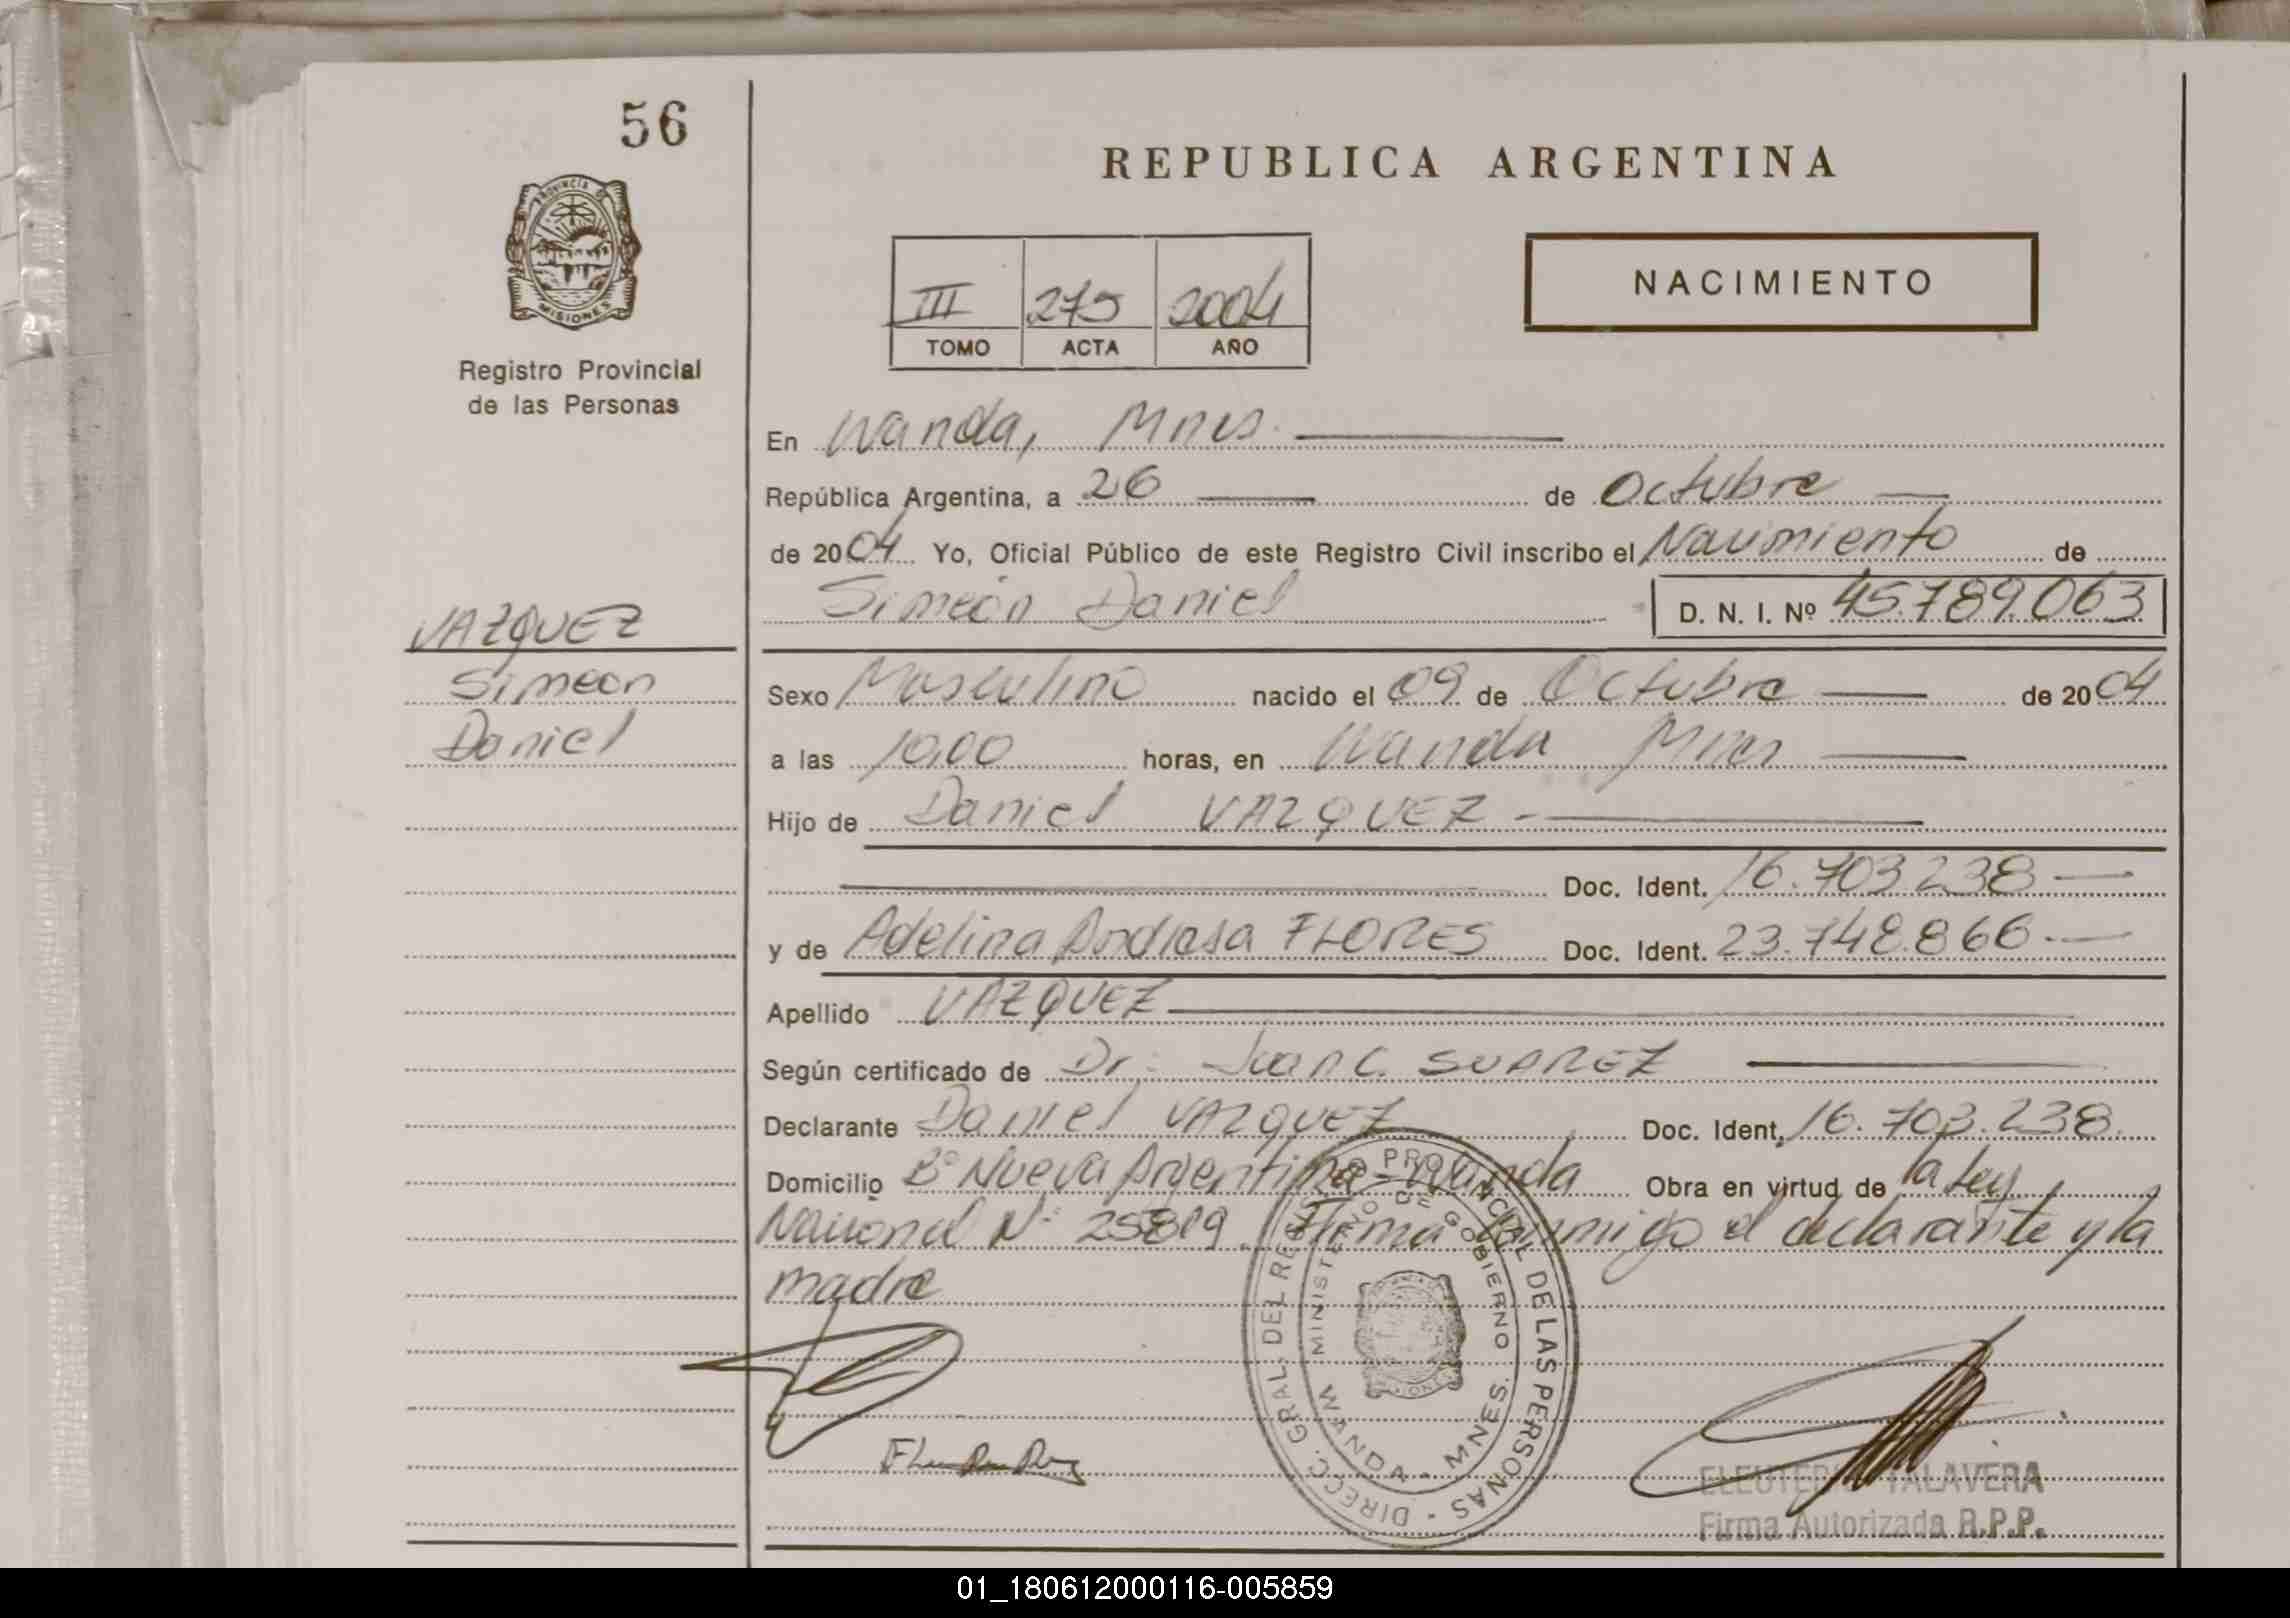 56
REPUBLICA ARGENTINA
PROVINCIA DE MISIONES
III 275 2004
TOMO ACTA AÑO
NACIMIENTO
Registro Provincial
de las Personas
En Wanda, Mnes.
República Argentina, a 26 de Octubre
de 2004 Yo, Oficial Público de este Registro Civil inscribo el Nacimiento de
Simeón Daniel D. N. I. Nº 45.789.063
VAZQUEZ
Simeon
Daniel
Sexo Masculino nacido el 09 de Octubre de 2004
a las 10,00 horas, en Wanda Mnes
Hijo de Daniel VAZQUEZ
Doc. Ident. 16.703.238
y de Adelina Andresa FLORES Doc. Ident. 23.748.866
Apellido VAZQUEZ
Según certificado de Dr. Juan C. SUAREZ
Declarante Daniel VAZQUEZ Doc. Ident. 16.703.238
Domicilio Bº Nueva Argentina - Wanda Obra en virtud de la Ley
Nacional Nº 25819. Firma conmigo el declarante y la
madre
DIRECC. GRAL. DEL REGISTRO PROVINCIAL DE LAS PERSONAS
MINISTERIO DE GOBIERNO
WANDA - MNES.
ELEUTERIO TALAVERA
Firma Autorizada R.P.P.
01_180612000116-005859